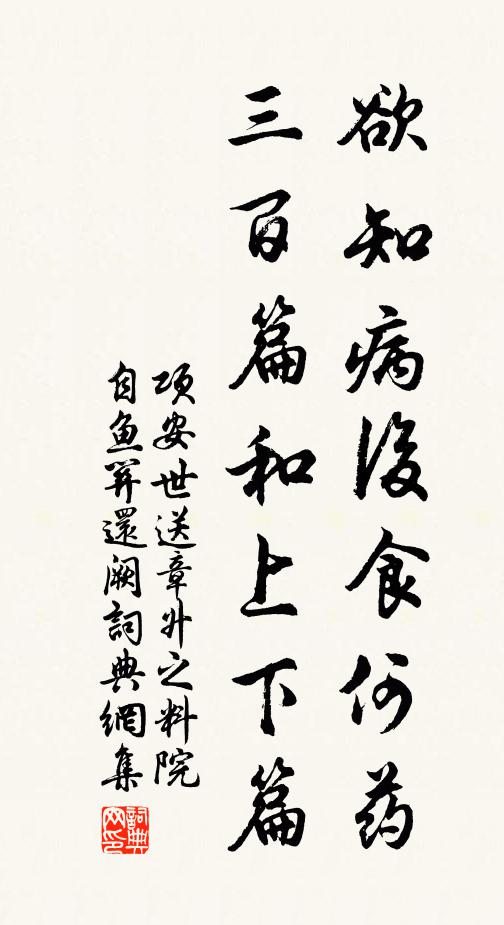 欲知病後食何药
三百篇和上下篇
项安世送章外之料院
自魚笄還阙詞典網集
詞典
网印